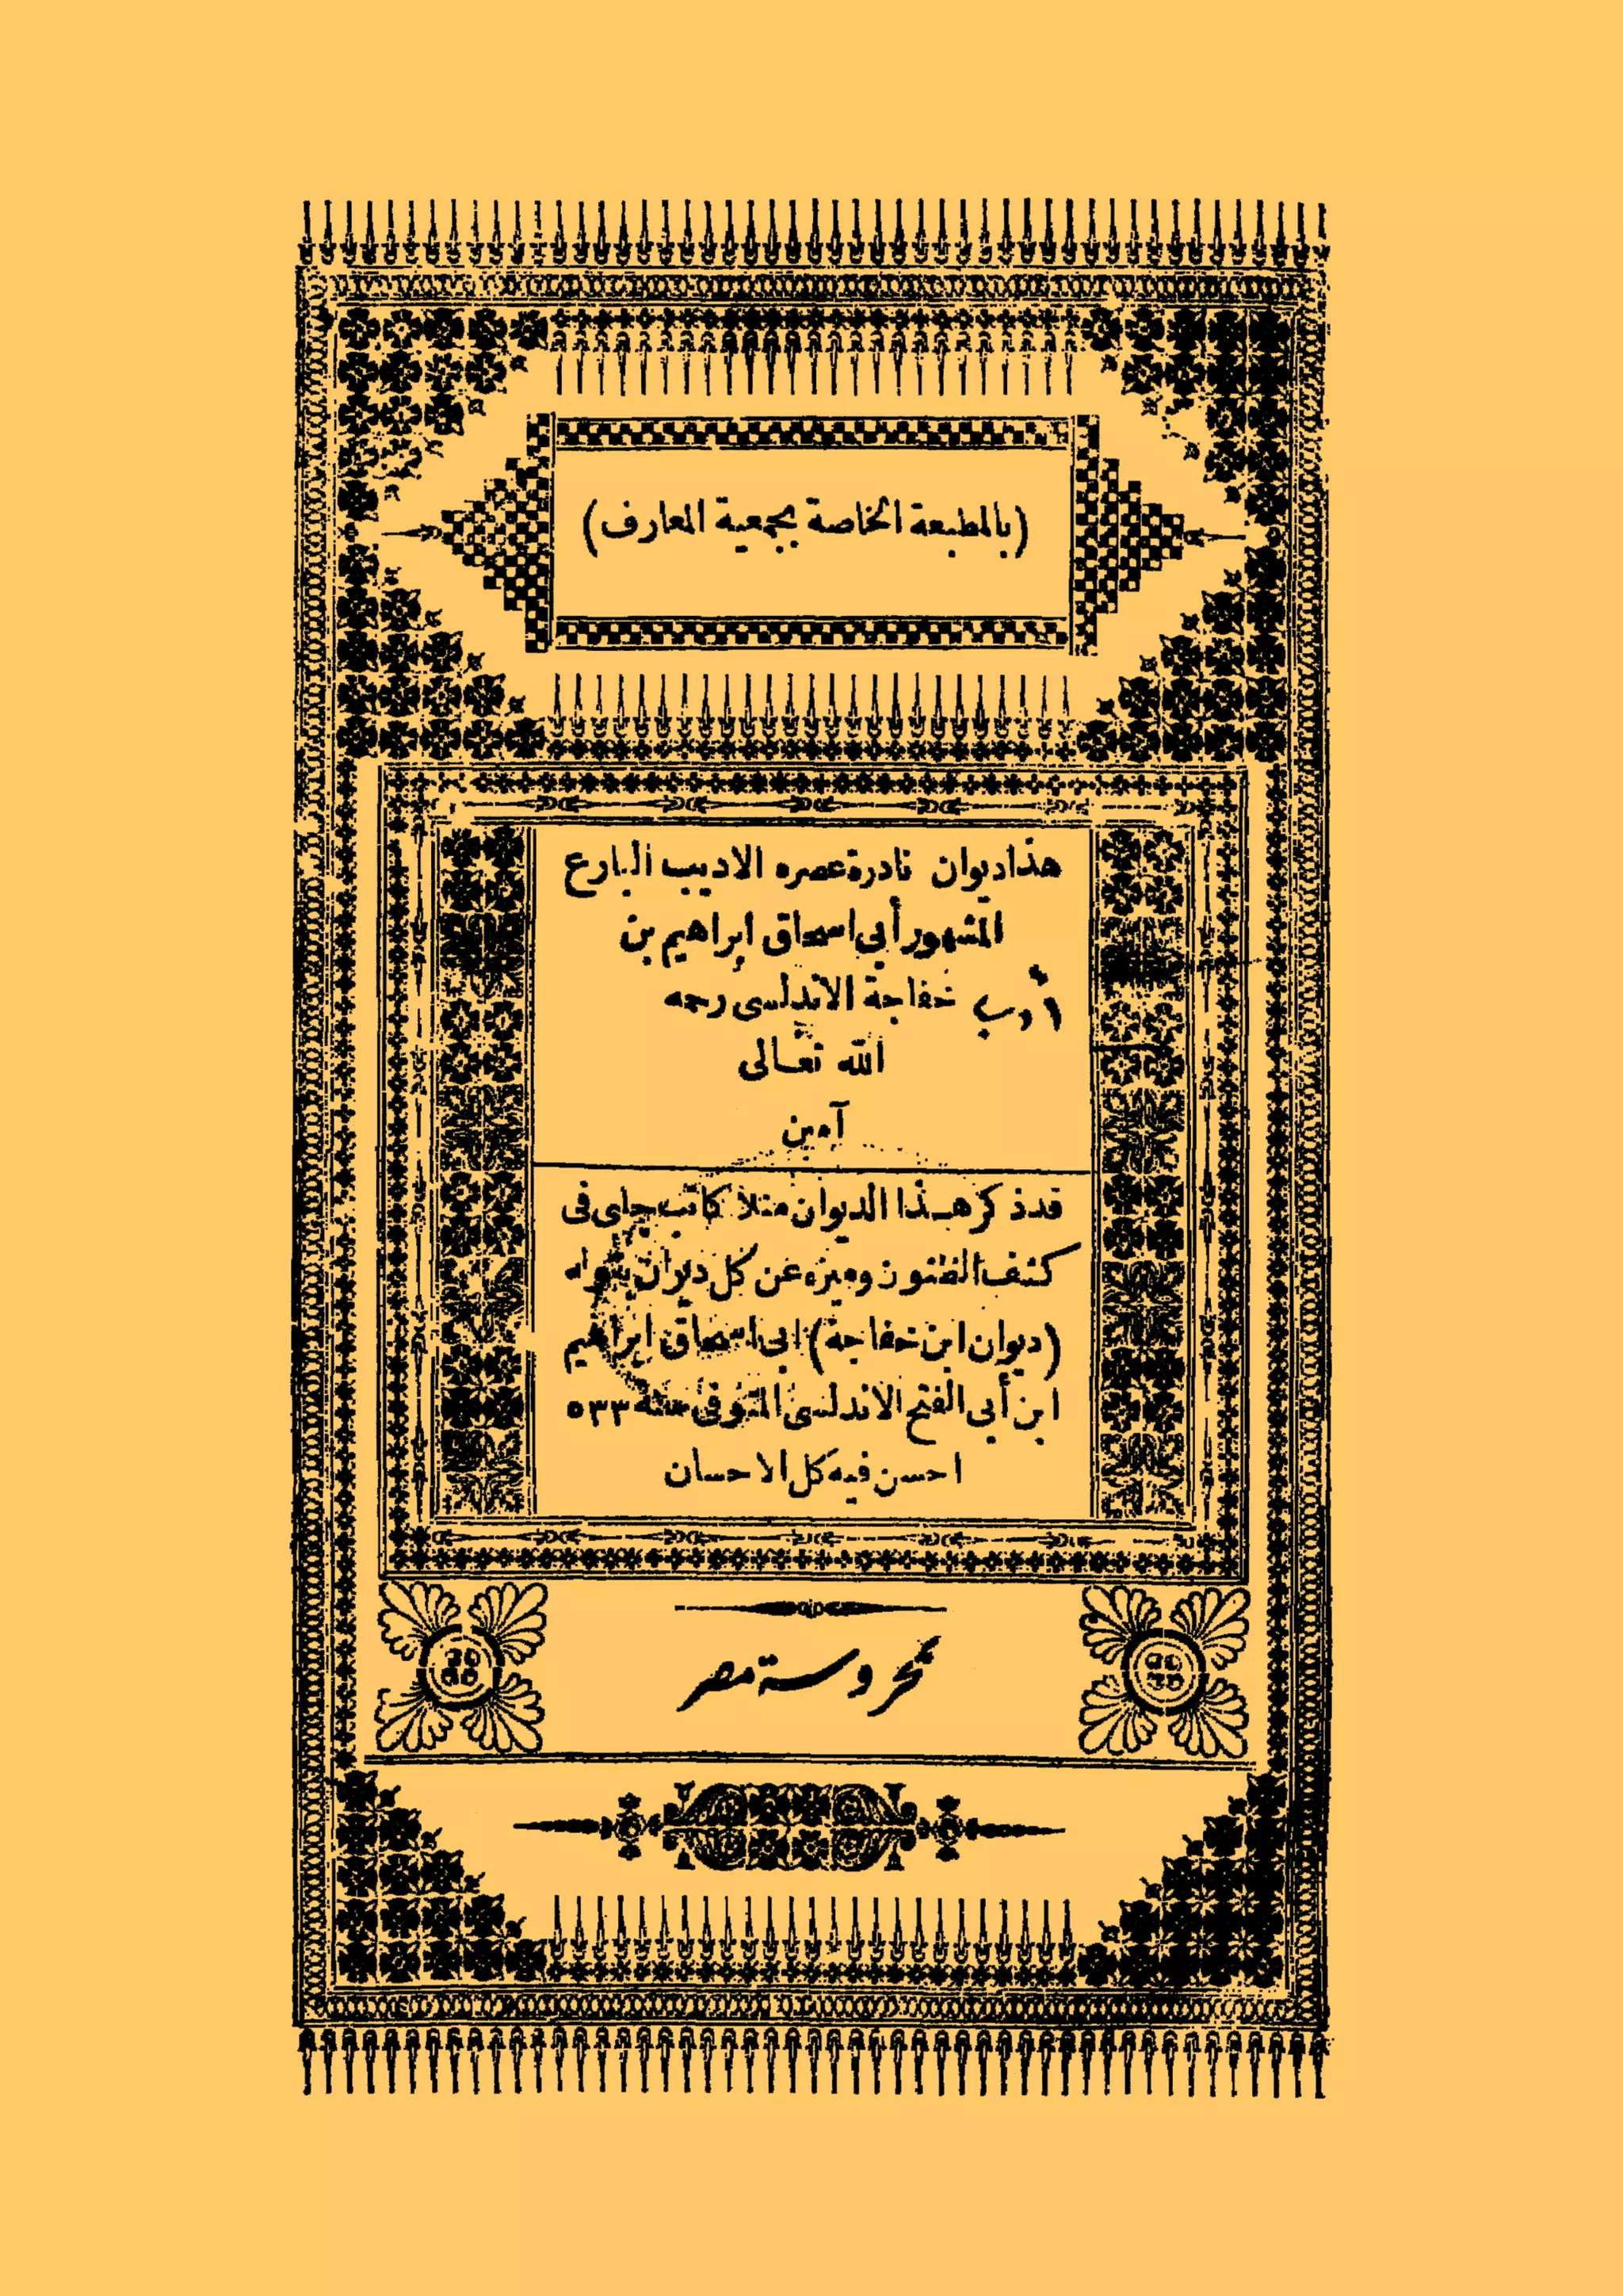 (بالمطبعة الخاصة بجمعية المعارف)
هذا ديوان نادرة عصره الاديب البارع
المشهور أبي اسحاق إبراهيم بن
خفاجة الاندلسى رحمه
الله تعالى
آمين
قد ذكر هذا الديوان منلا كاتب جلبى فى
كشف الظنون وميزه عن كل ديوان بقوله
(ديوان ابن خفاجة) ابى اسحاق ابراهيم
ابن أبي الفتح الاندلسى المتوفى سنة ٥٣٣
احسن فيه كل الاحسان
محروسة مصر